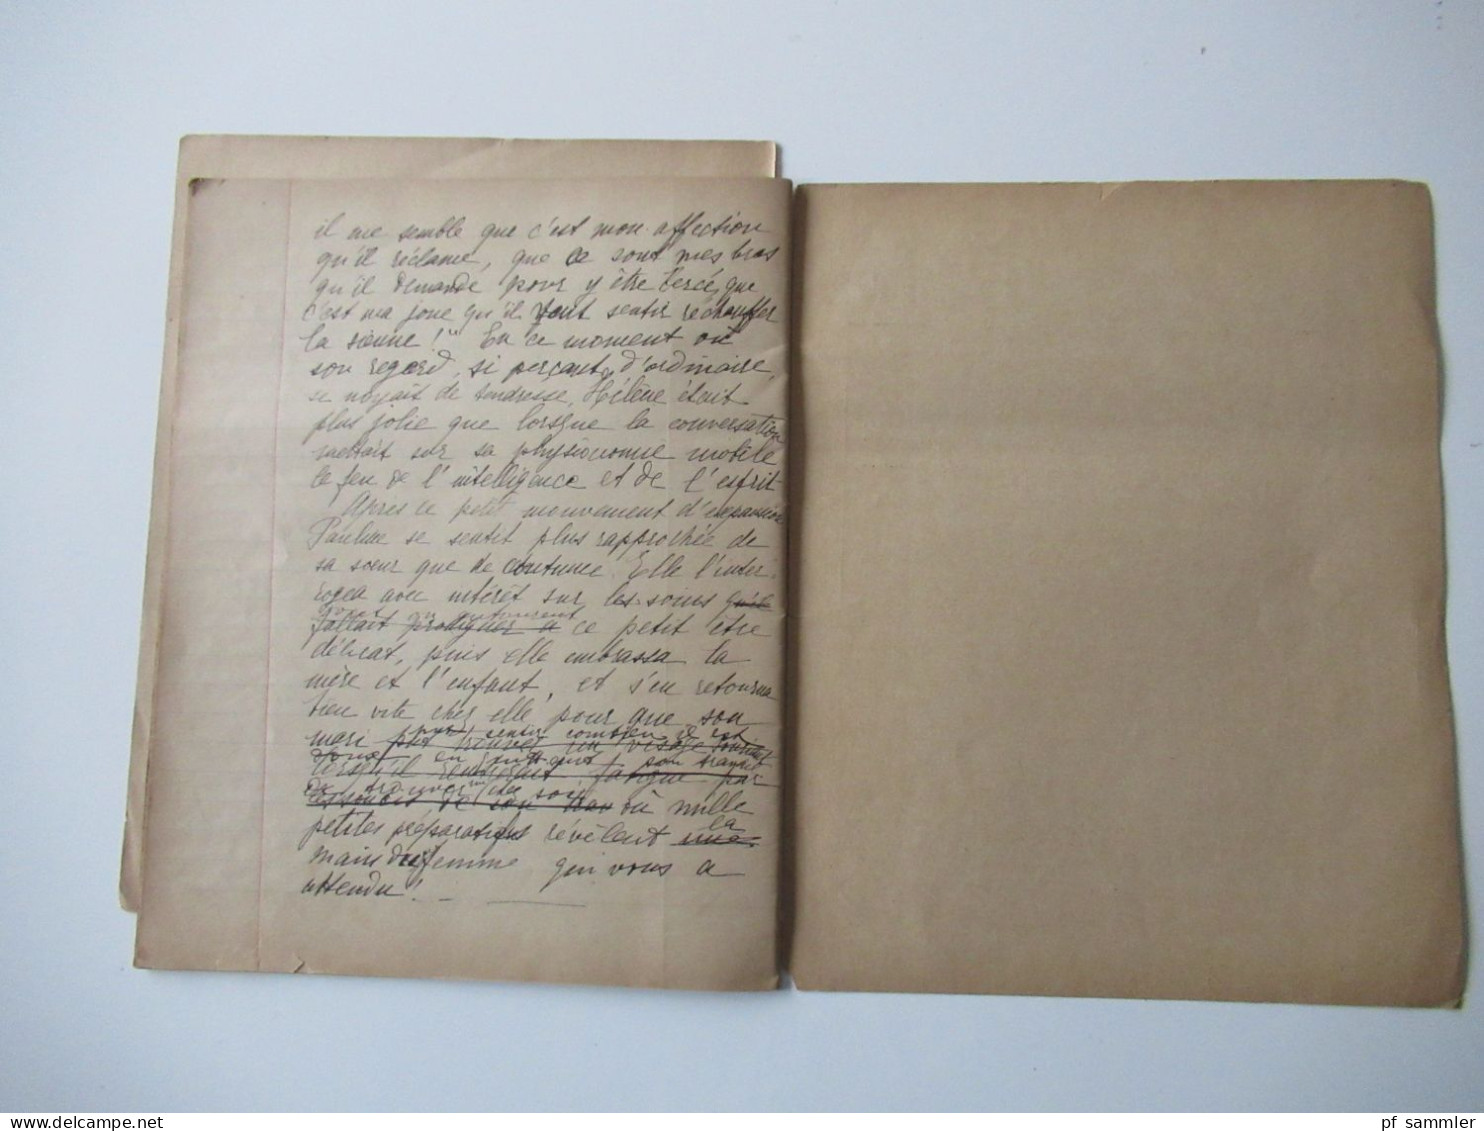 il me semble que c'est mon affection
qu'il réclame, que ce sont mes bras
qu'il demande pour y être bercé, que
c'est ma joue qu'il veut sentir réchauffer
la sienne !" En ce moment où
son regard, si perçant d'ordinaire,
se noyait de tendresse, Hélène était
plus jolie que lorsque la conversation
mettait sur sa physionomie mobile
le feu de l'intelligence et de l'esprit
Après ce petit mouvement d'expansion
Pauline se sentit plus rapprochée de
sa sœur que de coutume. Elle l'inter-
rogea avec intérêt sur les soins qu'il
fallait prodiguer à ce petit être
délicat, puis elle embrassa la
mère et l'enfant, et s'en retourna
bien vite chez elle pour que son
mari pût sentir combien il est
pût trouver un visage souriant
doux en
lorsqu'il fatigué par
de trouver un chez soi où mille
petites préparations révèlent une la
main de femme qui vous a
attendu ! _
delcampe.net
pf_sammler